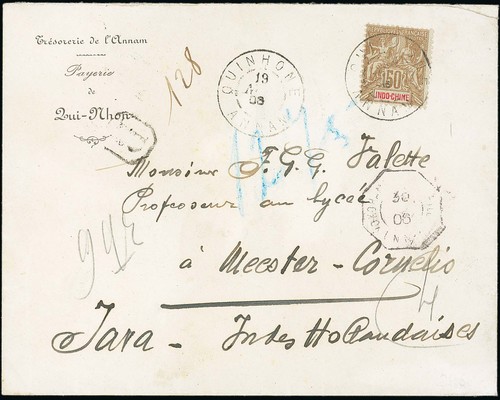 Trésorerie de l'Annam
Payerie
de
Qui-Nhon
128
QUINHONE
19
08
ANNAM
50
INDO-CHINE
ANNA
R
Monsieur F.G.G. Valette
Professeur au lycée
à Meester-Cornelis
Java - Indes Hollandaises
30
08